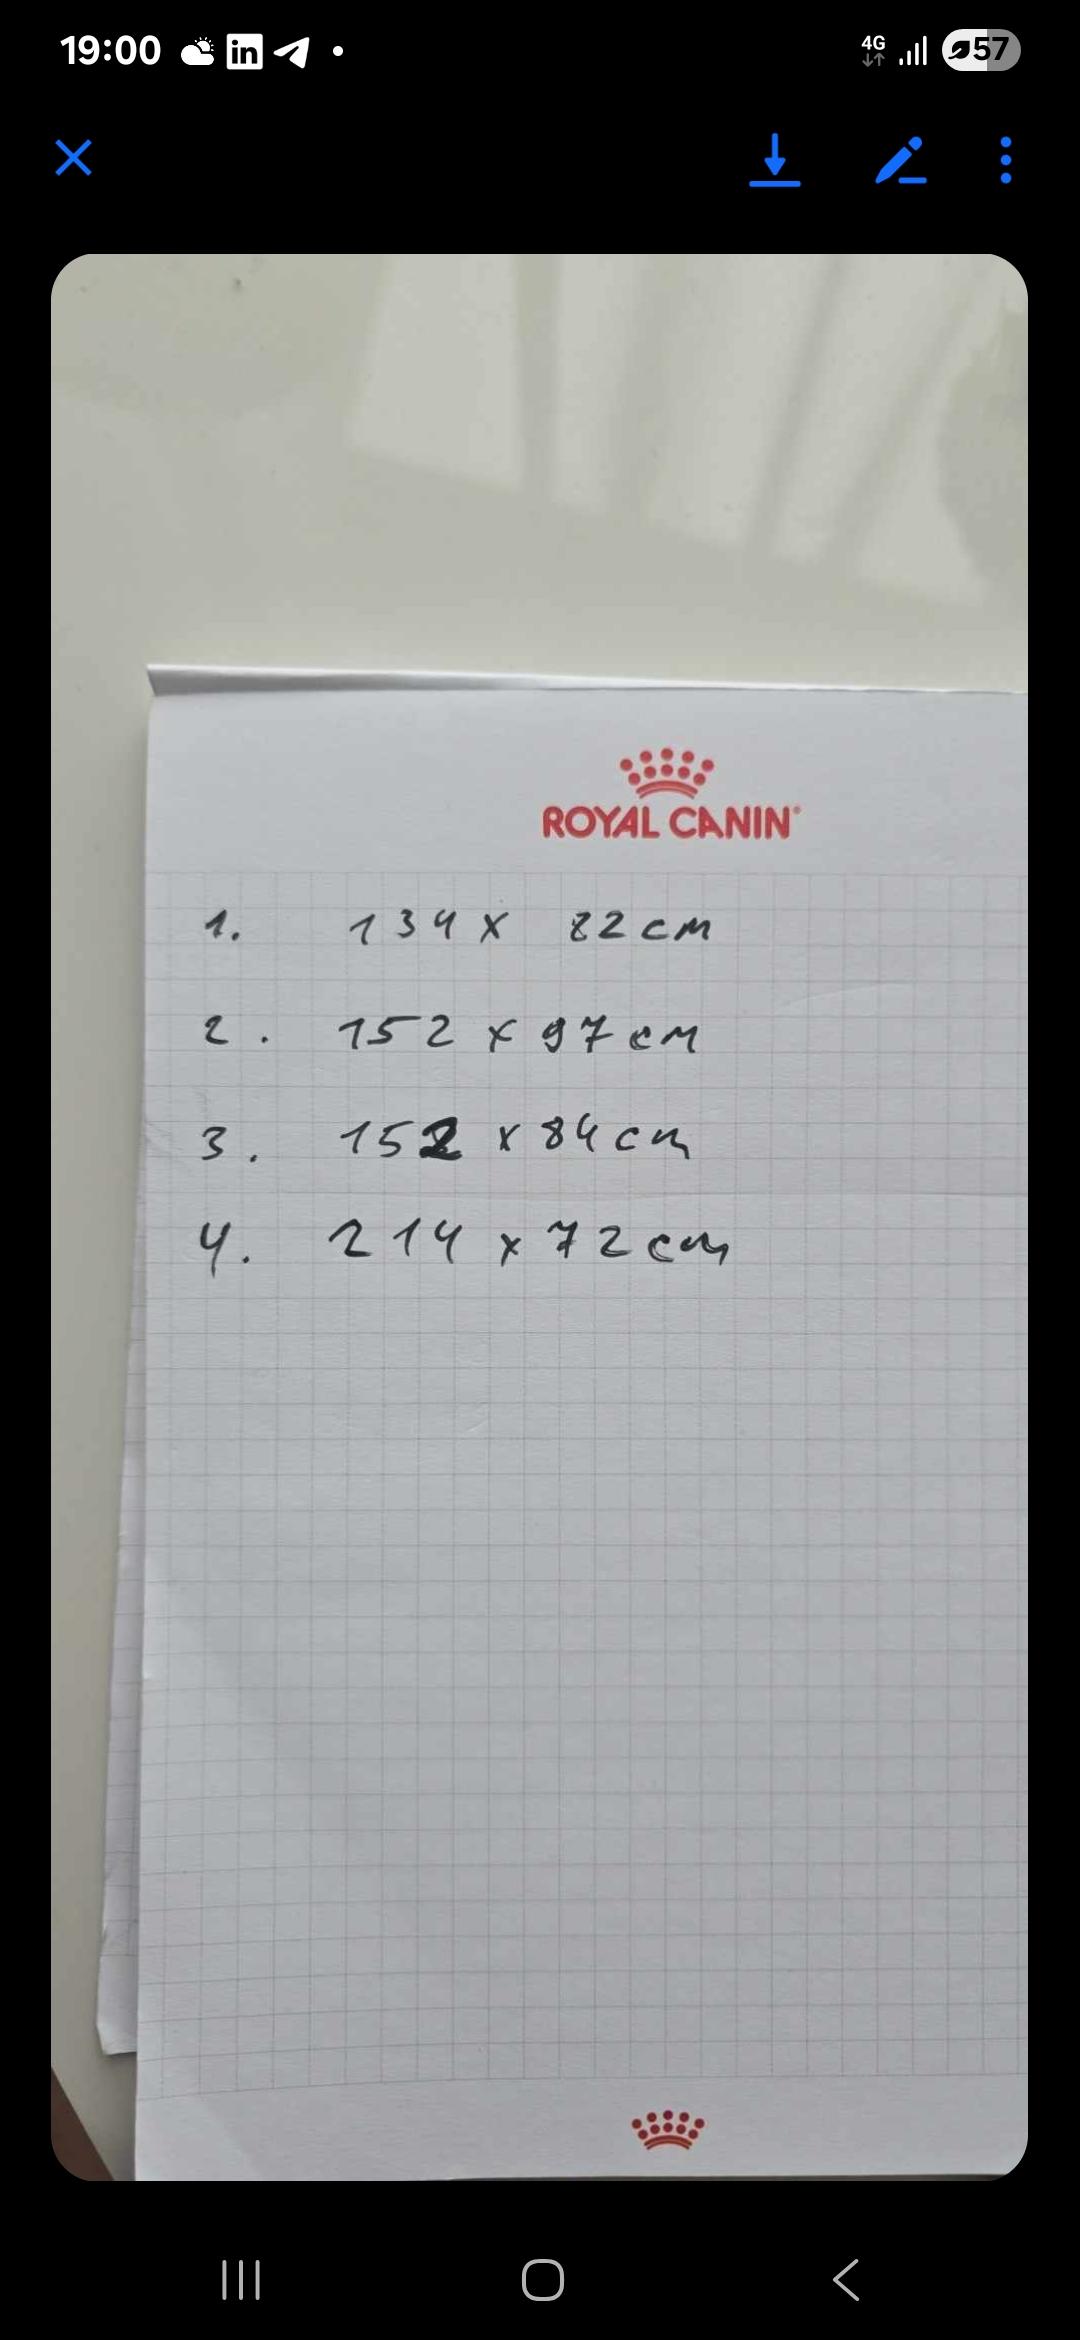 19:00
4G
57
ROYAL CANIN
1. 134 x 82 cm
2. 152 x 97 cm
3. 152 x 84 cm
4. 214 x 72 cm